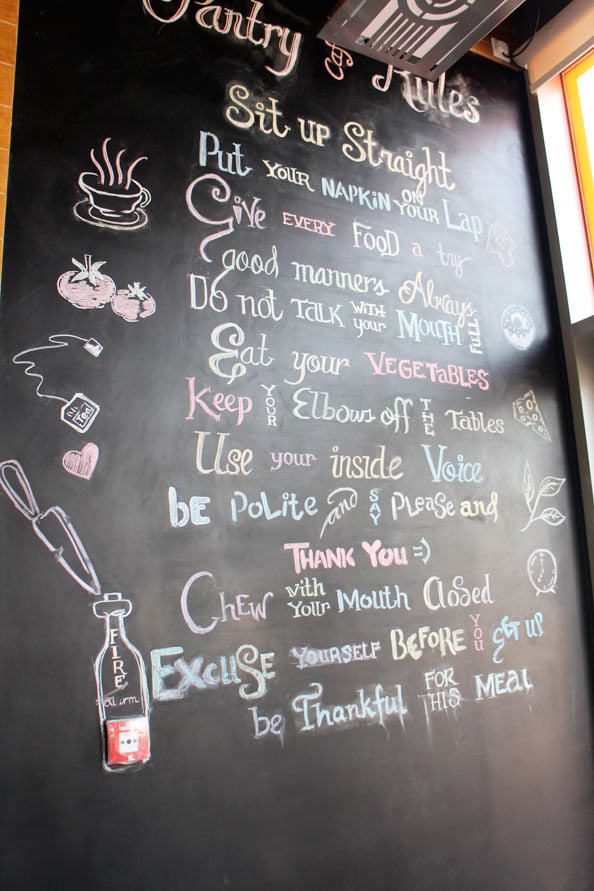 Pantry & Rules
Sit up Straight
Put YOUR NAPKIN ON YOUR Lap
Give EVERY FOOD a try
good manners Always
Do not TALK WITH your MOUTH FULL
Eat your VEGETABLES
Keep YOUR Elbows off THE Tables
Use your inside Voice
bE PoLite and SAY PLeaSe and
THANK YOU =)
CHEW with YOUR MOUTH Closed
EXCUSE YOURSELF BEFORE YOU GET UP
be Thankful FOR THIS MEAL
Tea!
FIRE
alarm